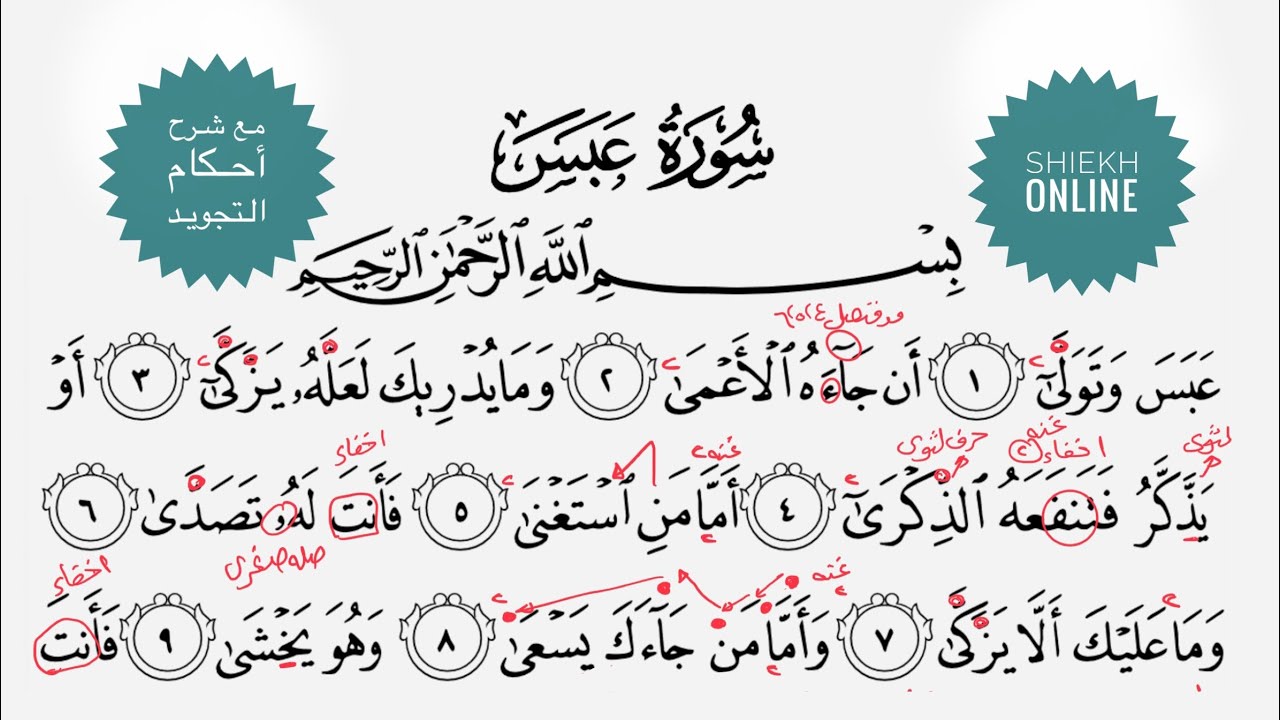 مع شرح
أحكام
التجويد
SHIEKH
ONLINE
سُورَةُ عَبَسَ
بِسْمِ ٱللَّهِ ٱلرَّحْمَٰنِ ٱلرَّحِيمِ
مد متصل ٦/٥/٤
عَبَسَ وَتَوَلَّىٰٓ ١ أَن جَآءَهُ ٱلْأَعْمَىٰ ٢ وَمَا يُدْرِيكَ لَعَلَّهُۥ يَزَّكَّىٰٓ ٣ أَوْ
لثوي
غنه
اخفاء
حرف لثوي
غنه
اخفاء
يَذَّكَّرُ فَتَنفَعَهُ ٱلذِّكْرَىٰٓ ٤ أَمَّا مَنِ ٱسْتَغْنَىٰ ٥ فَأَنتَ لَهُۥ تَصَدَّىٰ ٦
صله صغرى
غنه
اخفاء
وَمَا عَلَيْكَ أَلَّا يَزَّكَّىٰ ٧ وَأَمَّا مَن جَآءَكَ يَسْعَىٰ ٨ وَهُوَ يَخْشَىٰ ٩ فَأَنتَ